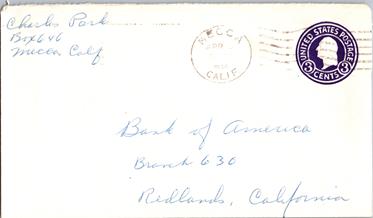 Charles Park
Box 646
Mecca Calif
MECCA
CALIF.
UNITED STATES POSTAGE
3 CENTS 3
Bank of America
Branch 630
Redlands, California